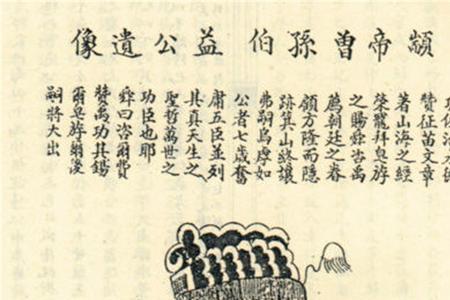 顓帝曾孫伯益公遺像
贊征苗文章
著山海之經
榮寵拜皂斿
之賜舜咨禹
薦朝廷之眷
顧方隆而隱
跡箕山終讓
弗嗣烏虖如
公者七歲奮
庸五臣並列
其真天生之
聖哲萬世之
功臣也耶
舜曰咨爾費
贊禹功其錫
爾皂斿爾後
嗣將大出